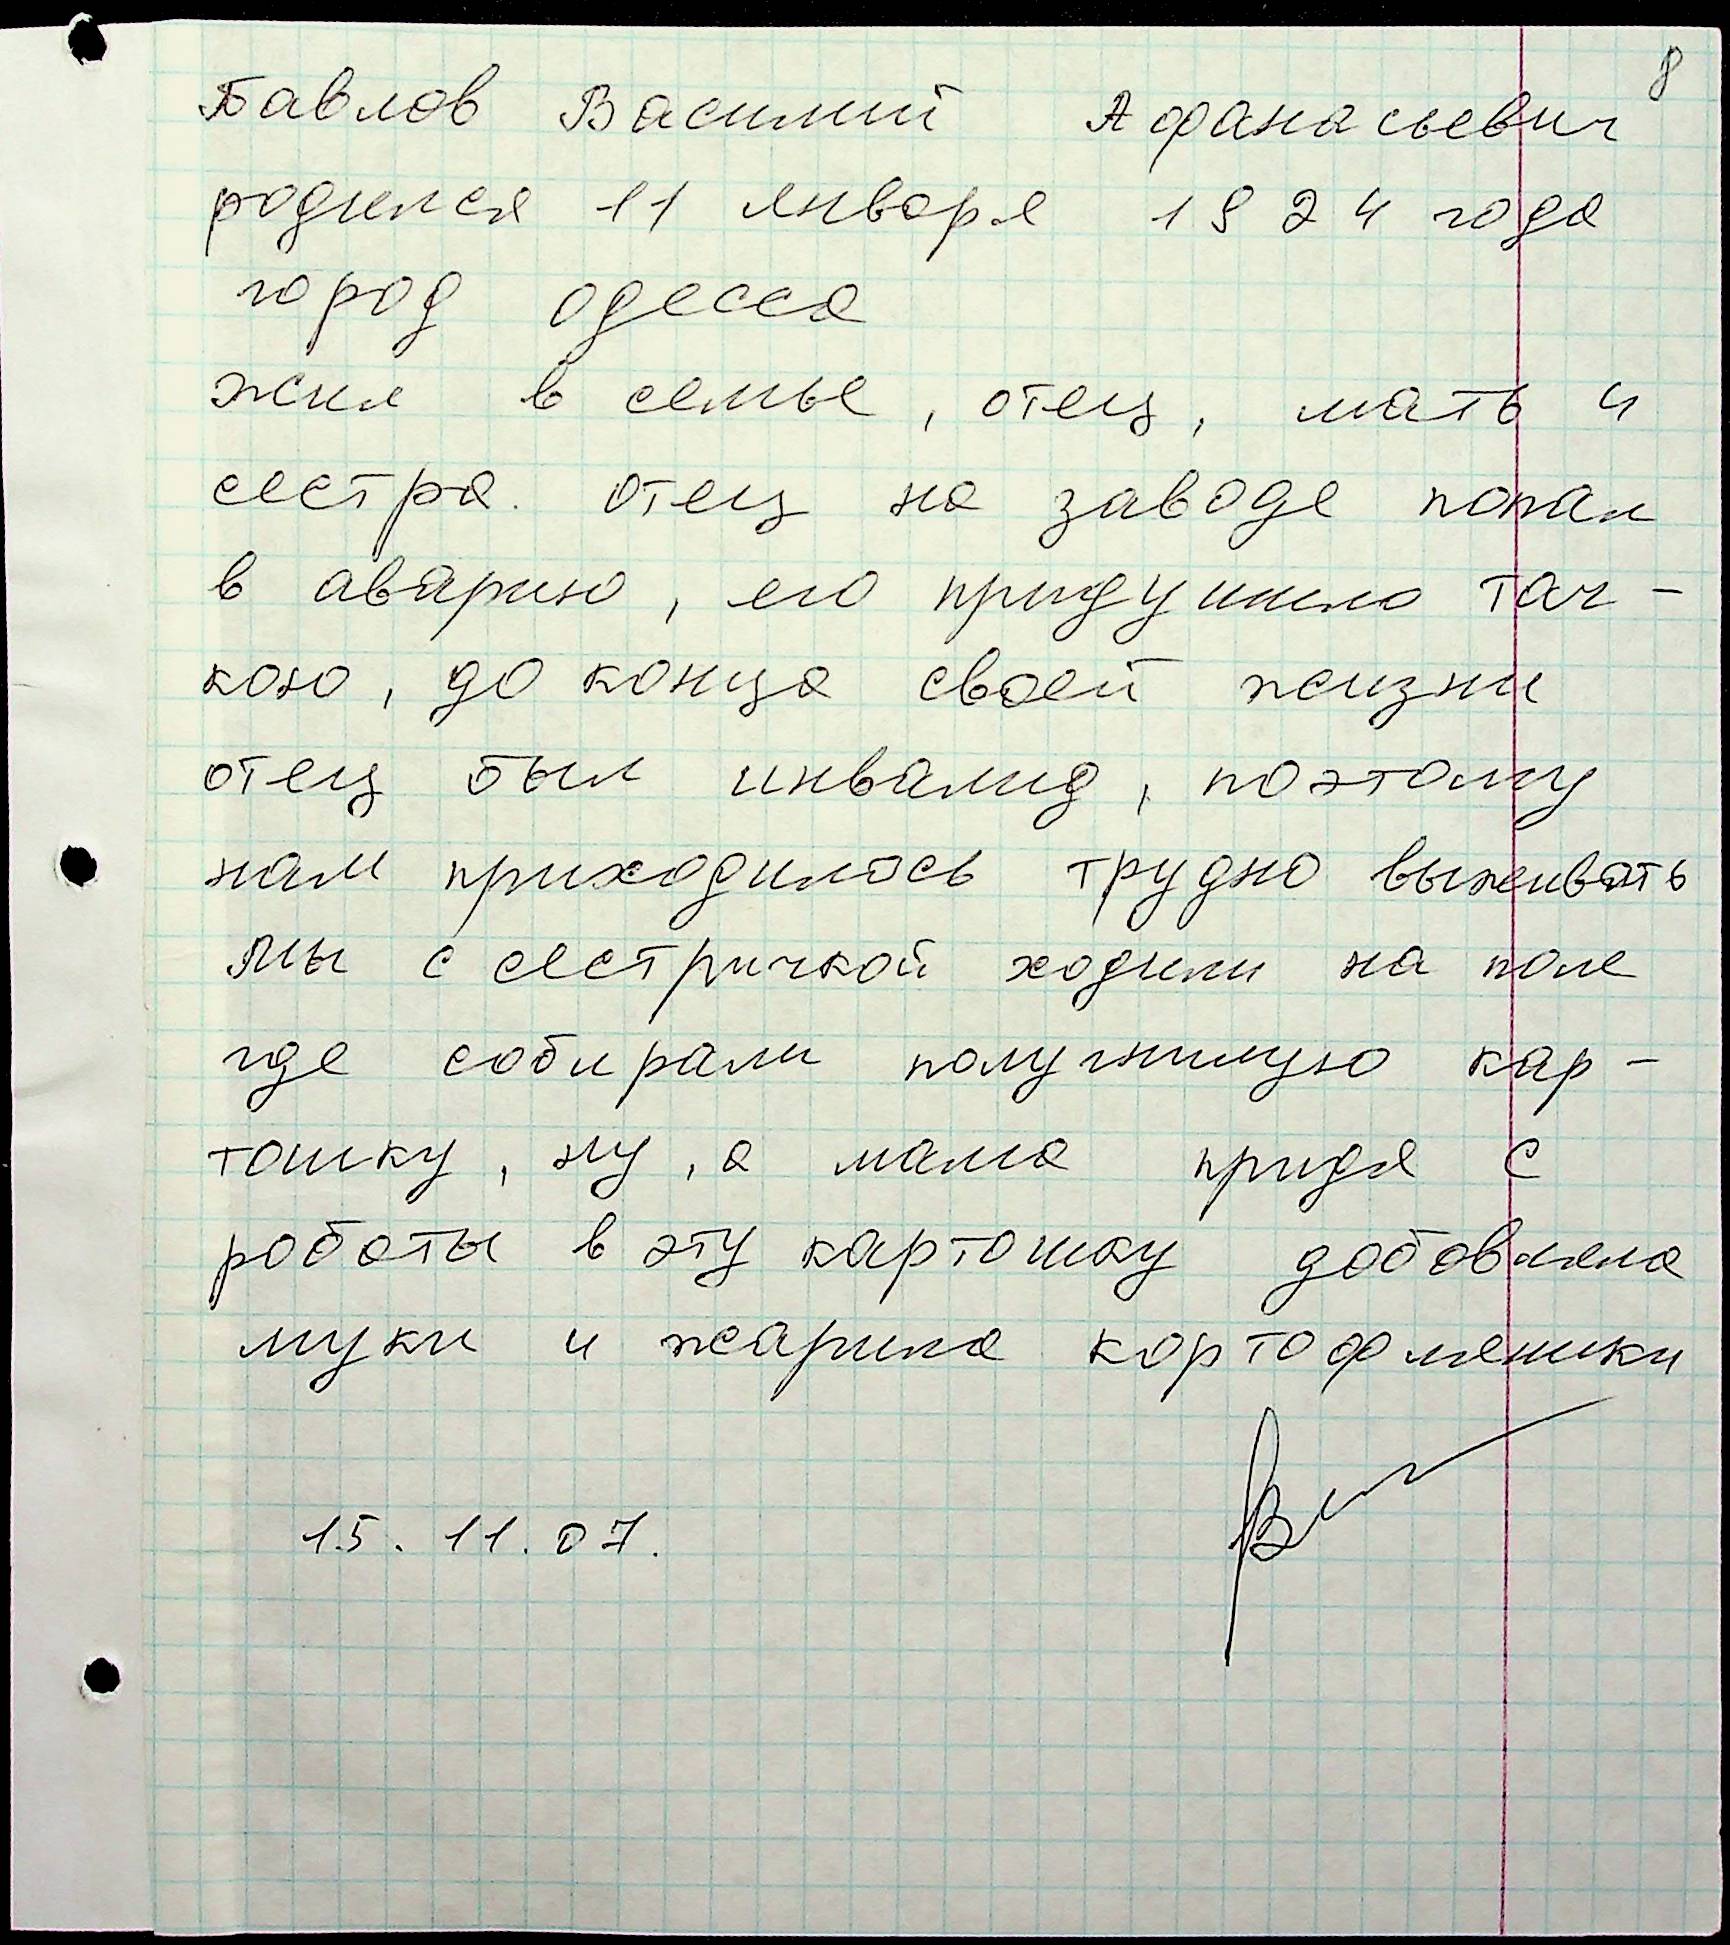 8
Павлов Василий Афанасьевич
родился 11 января 1924 года
город одесса
жил в семье, отец, мать и
сестра. отец на заводе попал
в аварию, его придушило тач-
кою, до конца своей жизни
отец был инвалид, поэтому
нам приходилось трудно выживать
Мы с сестричкой ходили на поле
где собирали полугнилую кар-
тошку, ну, а мама придя с
роботы в эту картошку добовляла
муки и жарила кортофляники
15.11.07.